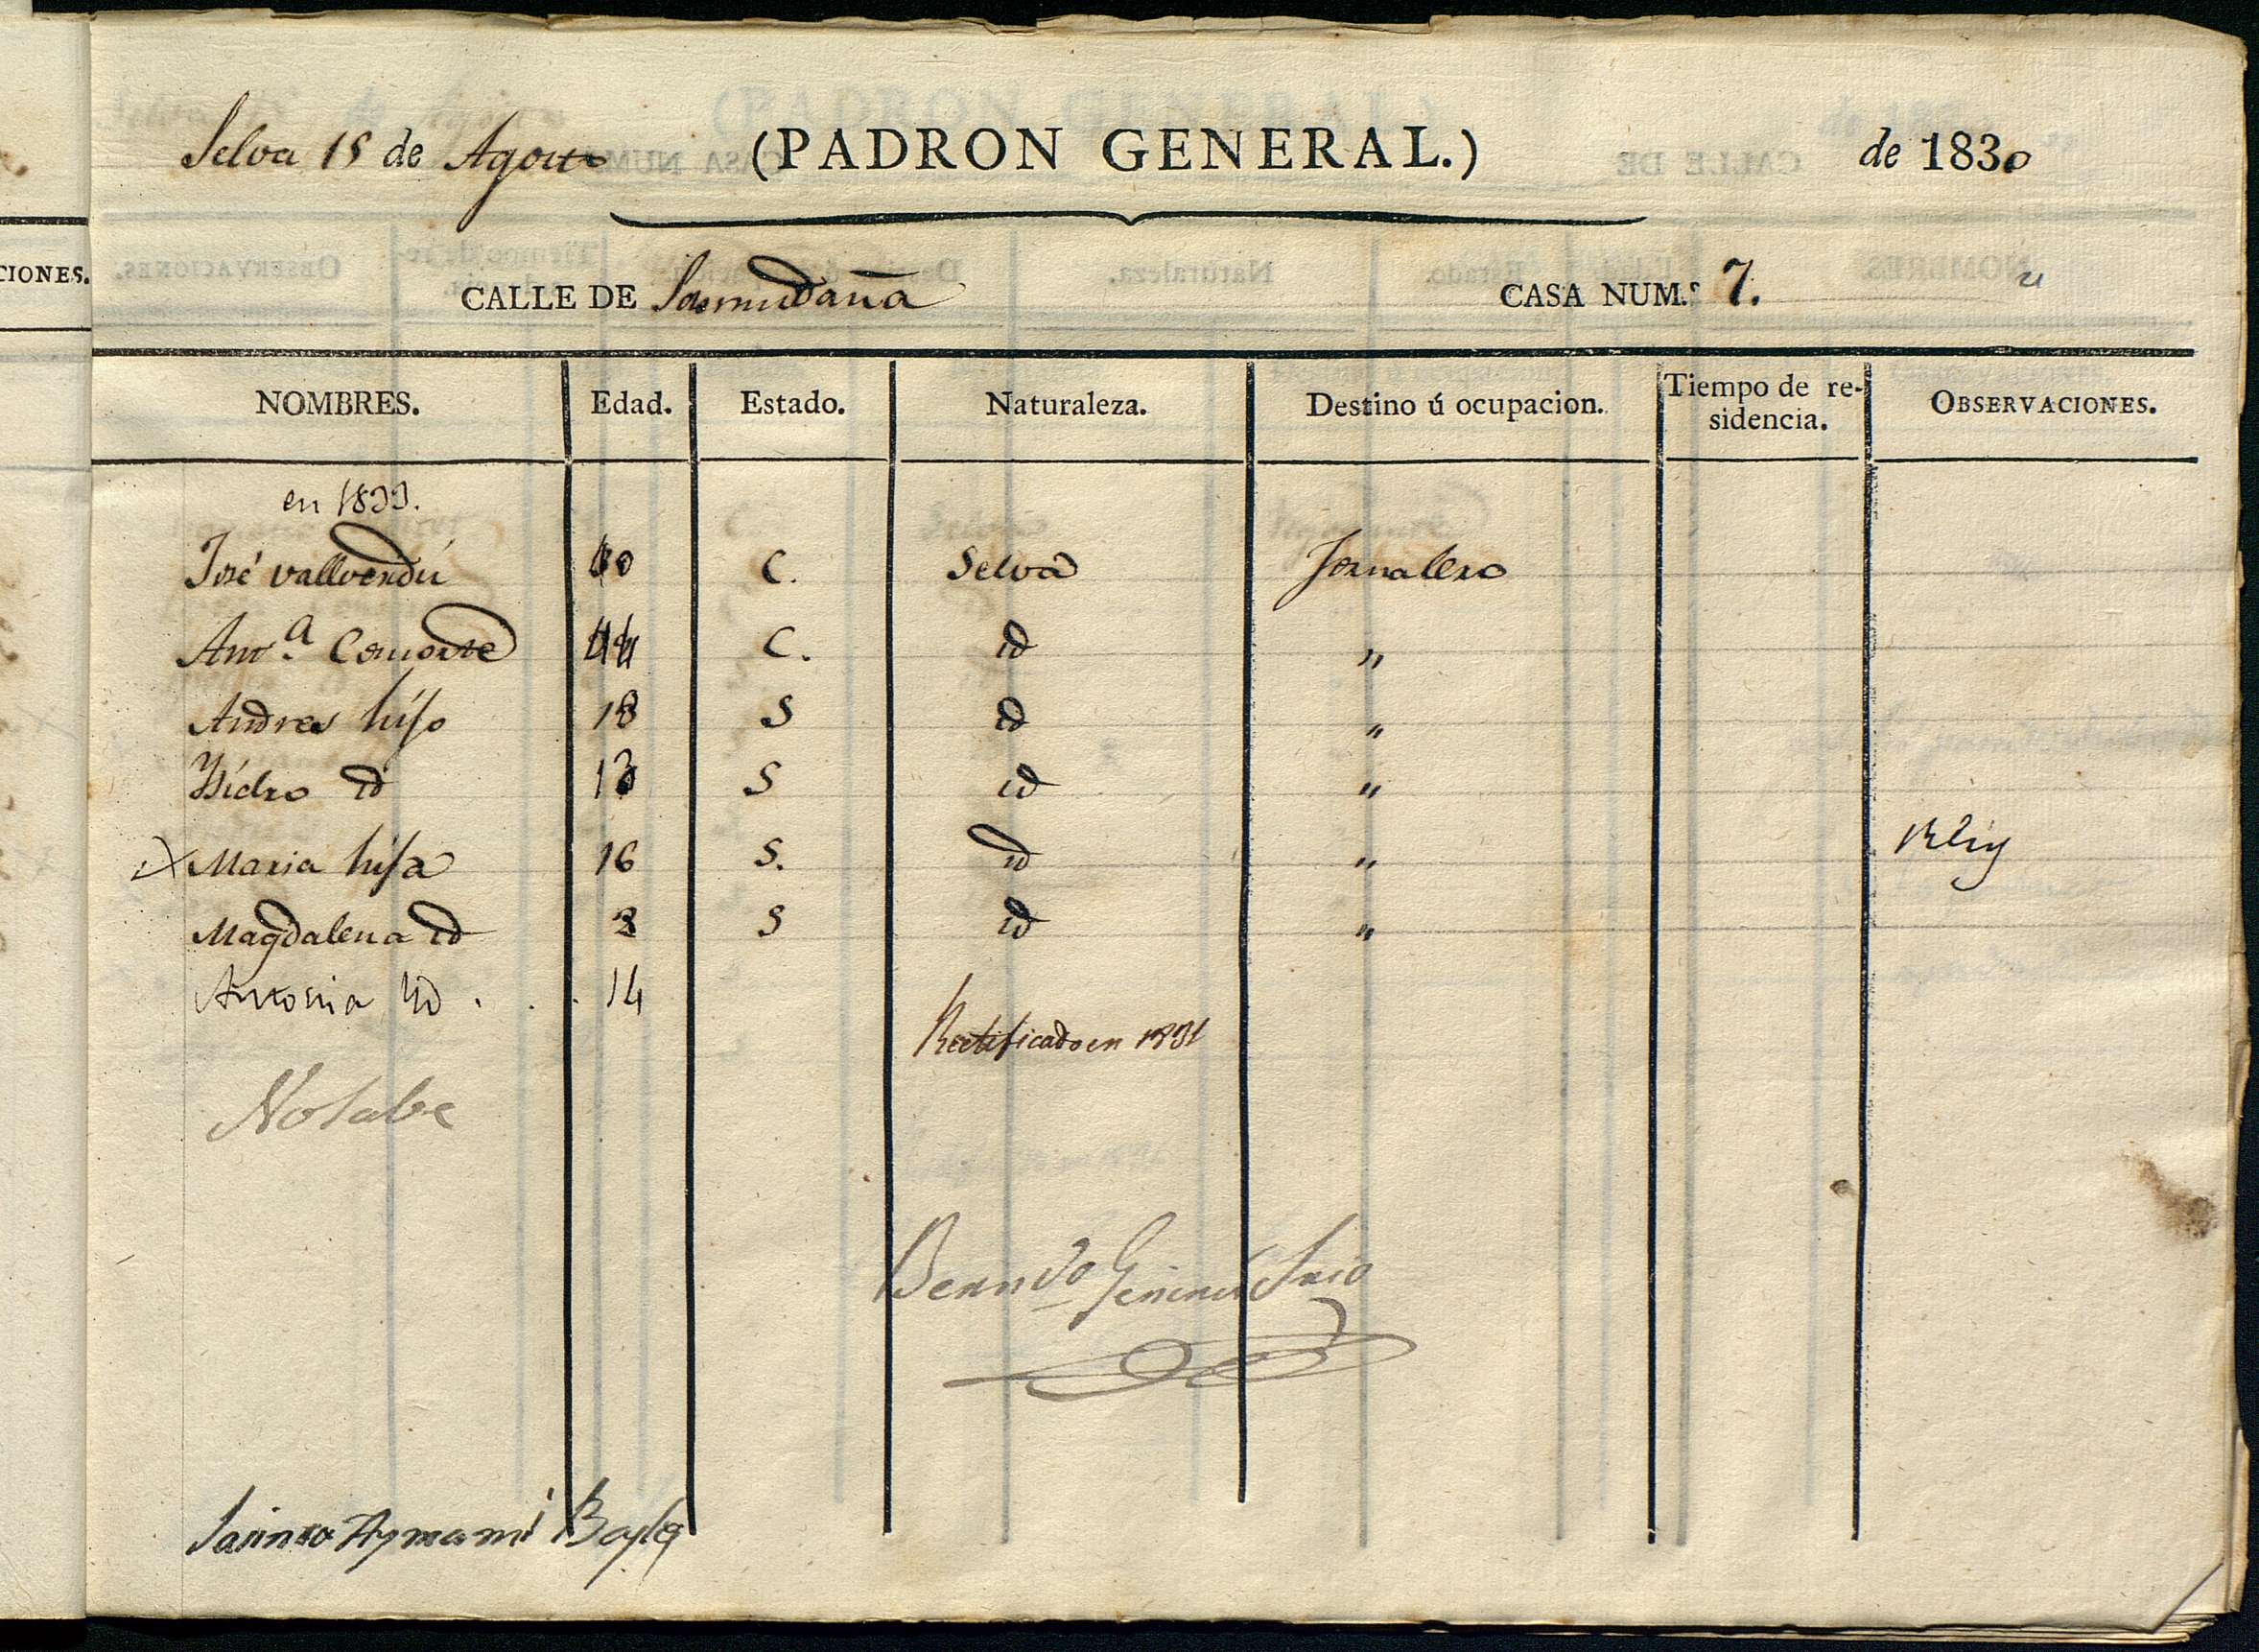 CIONES.
Selva 15 de Agosto (PADRON GENERAL.) de 1830
CALLE DE CASA NUM.º 7.
NOMBRES. Edad. Estado. Naturaleza. Destino ú ocupacion. Tiempo de re-
sidencia. OBSERVACIONES.
en 1833.
José vallverdú C. Selva Jornalero
Antª. Consorte 44 C. id "
Andres hijo 18 S id "
Ysidro id 13 S id "
Maria hija 16 S. id "
Magdalena id S id "
Antonia Yd . . . 14
Rectificado en 1831
No sabe
Bernndo Gimenez Srio
Jasinto Aymamí Bayle